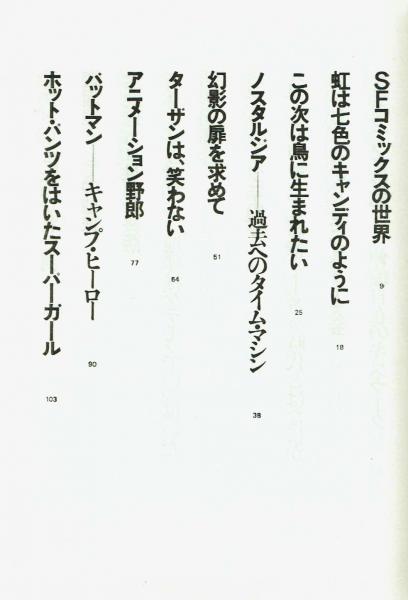 SFコミックスの世界 9
虹は七色のキャンディのように 18
この次は鳥に生まれたい 25
ノスタルジア——過去へのタイム・マシン 38
幻影の扉を求めて 51
ターザンは、笑わない 64
アニメーション野郎 77
バットマン——キャンプ・ヒーロー 90
ホット・パンツをはいたスーパーガール 103